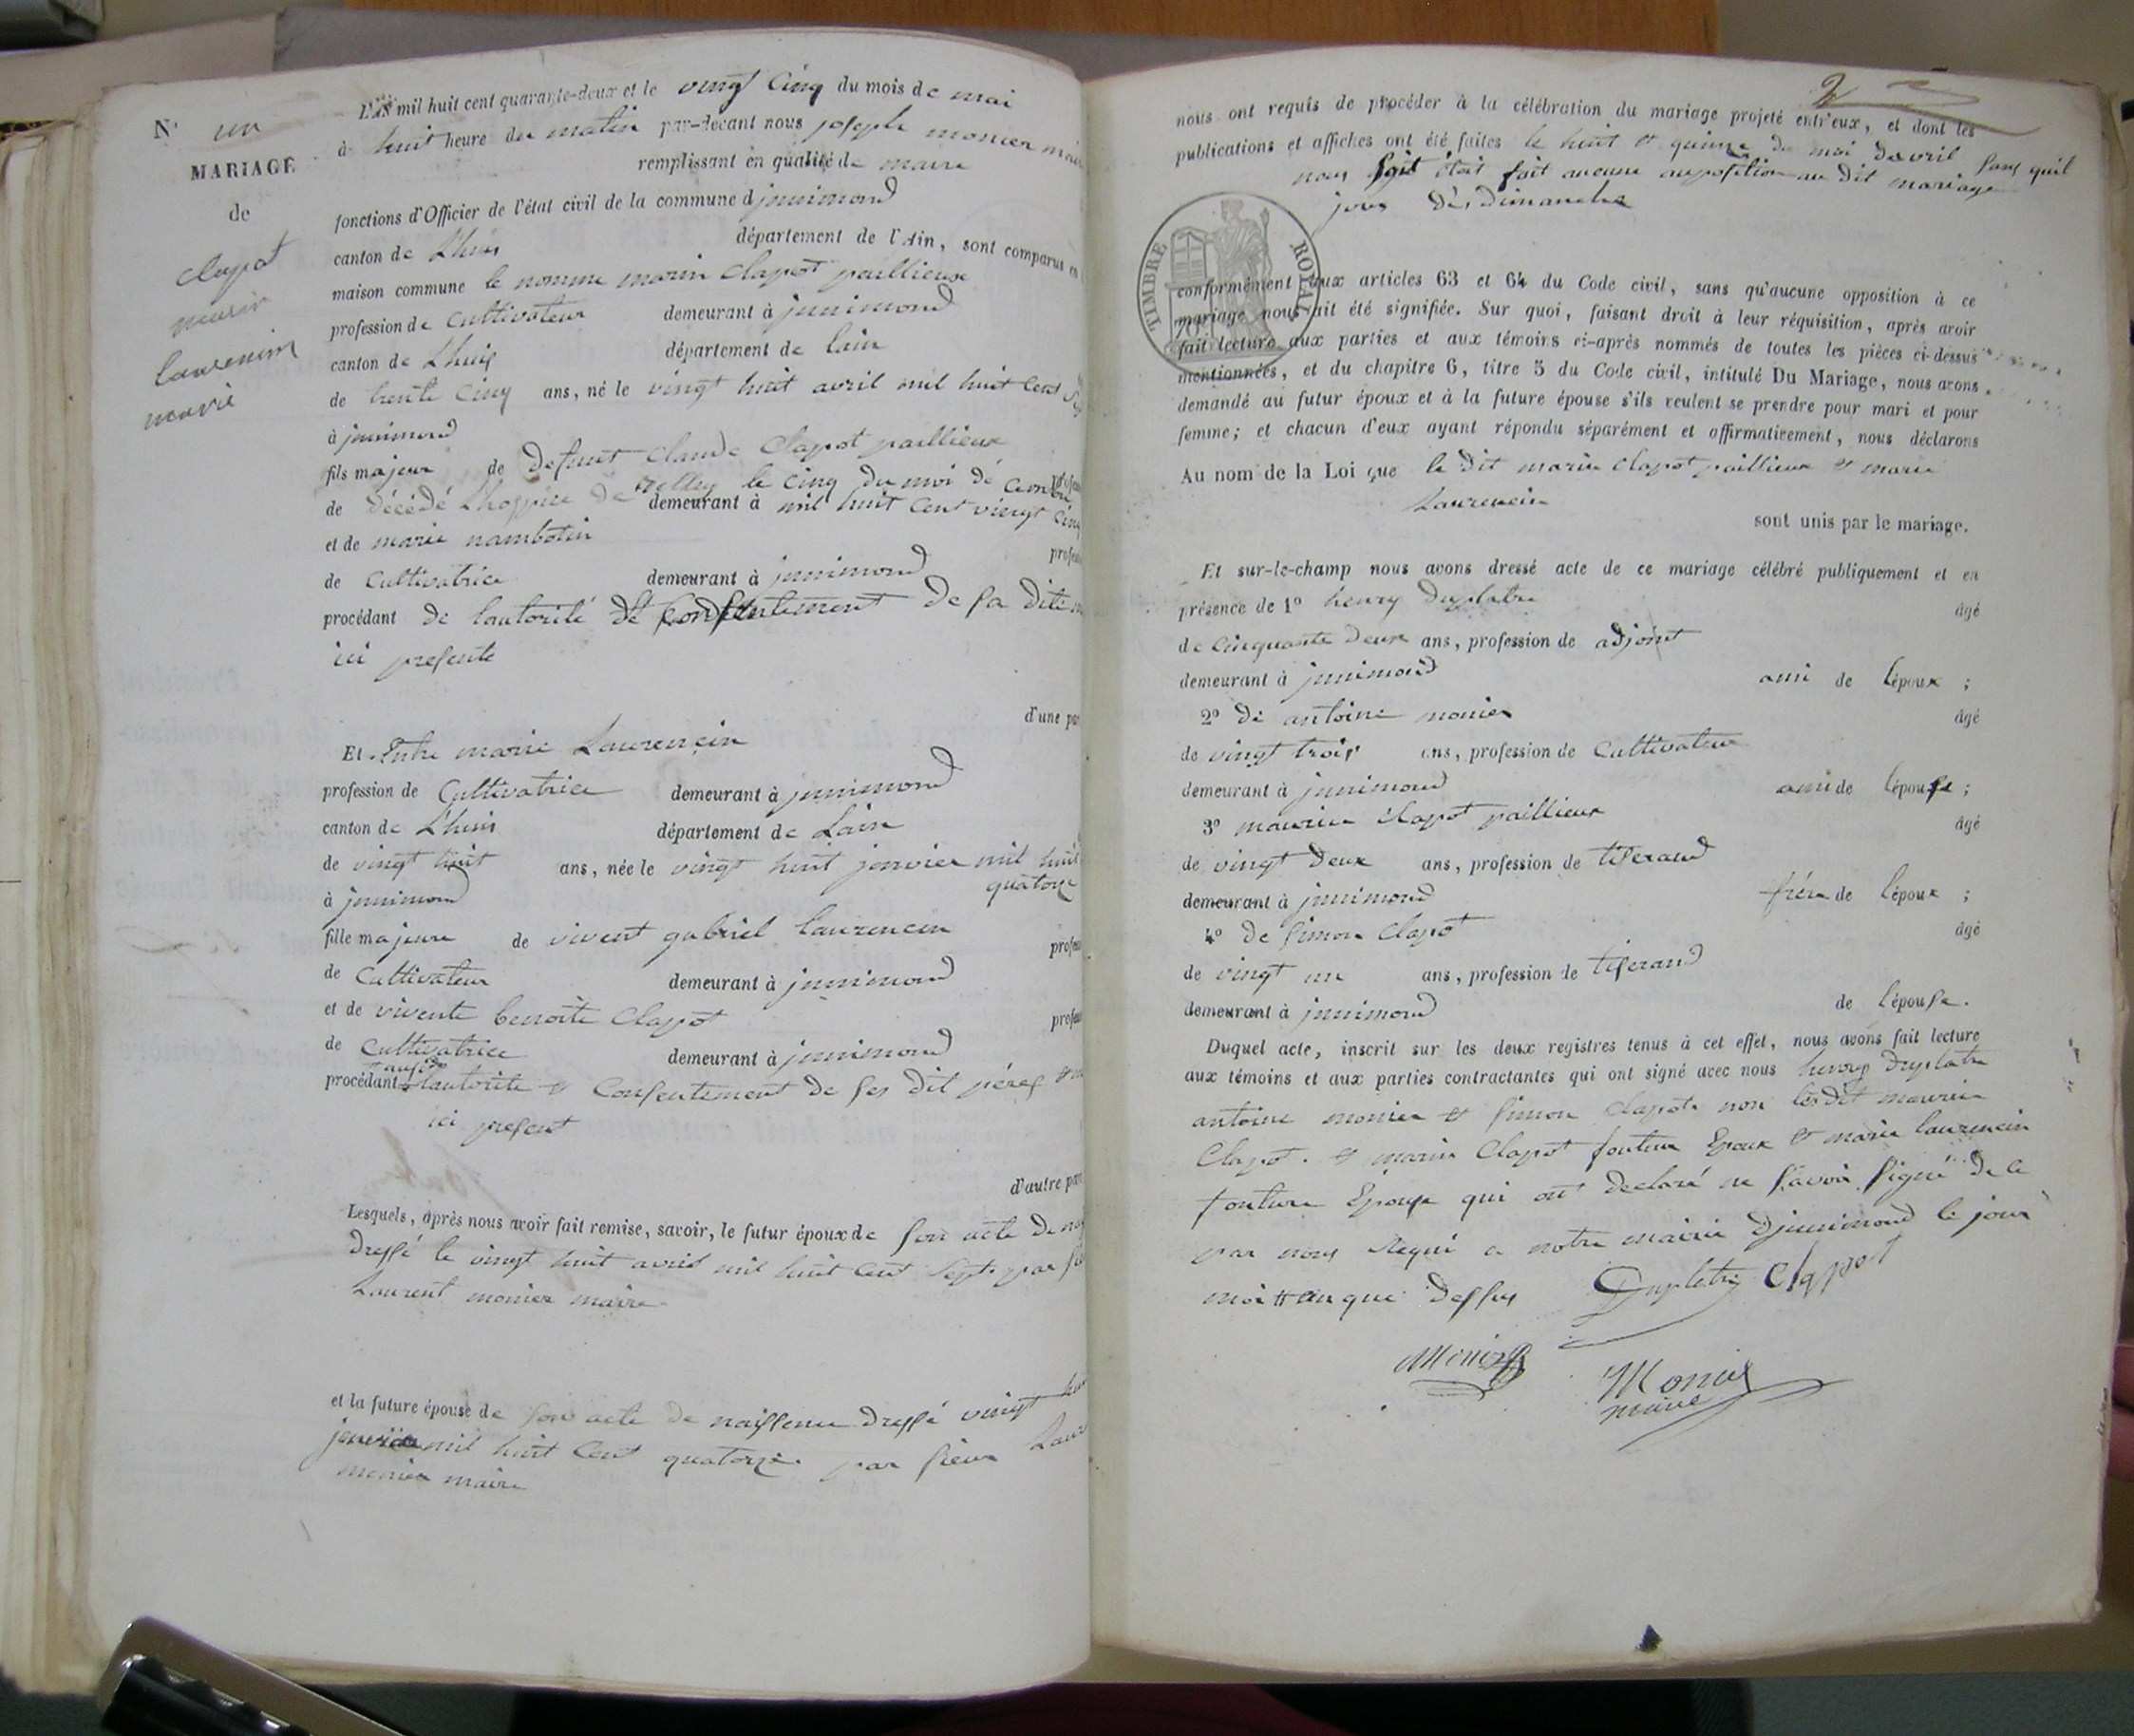 N° un
MARIAGE
de
clapot
marin
laurencin
marie
L'AN mil huit cent quarante-deux et le vingt Cinq du mois de mai
à huit heure du matin par-devant nous joseph monier maire
remplissant en qualité de maire
fonctions d'Officier de l'état civil de la commune d junimond
canton de Lhuis département de l'Ain, sont comparus en
maison commune le nomme marin Clapot paillieux
profession de Cultivateur demeurant à junimond
canton de Lhuis département de lain
de trente Cinq ans, né le vingt huit avril mil huit Cent Sept
à junimond
fils majeur de defunt Claude Clapot paillieux
de décédé Lhospice de Belley le Cinq du moi dé
demeurant à mil huit Cent vingt Cinq
et de marie nambotin profes
de Cultivatrice demeurant à junimond
procédant de lautorité et Consentement de sa dite
ici presente
d'une par
Et Entre marie Laurencin
profession de Cultivatrice demeurant à junimond
canton de Lhuis département de Lain
de vingt huit ans, née le vingt huit janvier mil huit
quatorze
à junimond
fille majeure de vivent gabriel laurencin profes
de Cultivateur demeurant à junimond
et de vivente benoite Clapot profes
de Cultivatrice demeurant à junimond
procédant lautorité et Consentement de ses dit péres et
ici present
d'autre part
Lesquels, après nous avoir fait remise, savoir, le futur époux de son acte de
dressé le vingt huit avril mil huit Cent Sept par
Laurent monier maire
et la future épouse de son acte de naissence dressé vingt
janvier mil huit Cent quatorze par sieur Laur
monier maire
2
nous ont requis de procéder à la célébration du mariage projeté entr'eux, et dont les
publications et affiches ont été faites le huit et quinze du moi davril sans quil
nous soit était fait aucune auposition au dit mariage
jour de dimanche
TIMBRE ROYAL
conformément aux articles 63 et 64 du Code civil, sans qu'aucune opposition à ce
mariage nous ait été signifiée. Sur quoi, faisant droit à leur réquisition, après avoir
fait lecture aux parties et aux témoins ci-après nommés de toutes les pièces ci-dessus
mentionnées, et du chapitre 6, titre 5 du Code civil, intitulé Du Mariage, nous avons
demandé au futur époux et à la future épouse s'ils veulent se prendre pour mari et pour
femme; et chacun d'eux ayant répondu séparément et affirmativement, nous déclarons
Au nom de la Loi que le dit marin Clapot paillieux et marie
Laurencin
sont unis par le mariage.
Et sur-le-champ nous avons dressé acte de ce mariage célébré publiquement et en
présence de 1° henry Duplatre âgé
de Cinquante deux ans, profession de adjoint
demeurant à junimond ami de lépoux ;
2° de antoine monier âgé
de vingt trois ans, profession de Cultivateur
demeurant à junimond ami de lépouse ;
3° maurice Clapot paillieux âgé
de vingt deux ans, profession de tiserand
demeurant à junimond frére de lépoux ;
4° de simon Clapot âgé
de vingt un ans, profession de tiserand
demeurant à junimond de lépouse.
Duquel acte, inscrit sur les deux registres tenus à cet effet, nous avons fait lecture
aux témoins et aux parties contractantes qui ont signé avec nous henry Duplatre
antoine monier et simon Clapot. non lesdit maurice
Clapot. et marin Clapot fouteur Epoux et marie laurencin
fouture Epouse qui ont declaré ne savoir signé de ce
par nous requi a notre mairie Djunimond le jour
moi et an que dessus Duplatre Clapot
Monier
Monier
maire